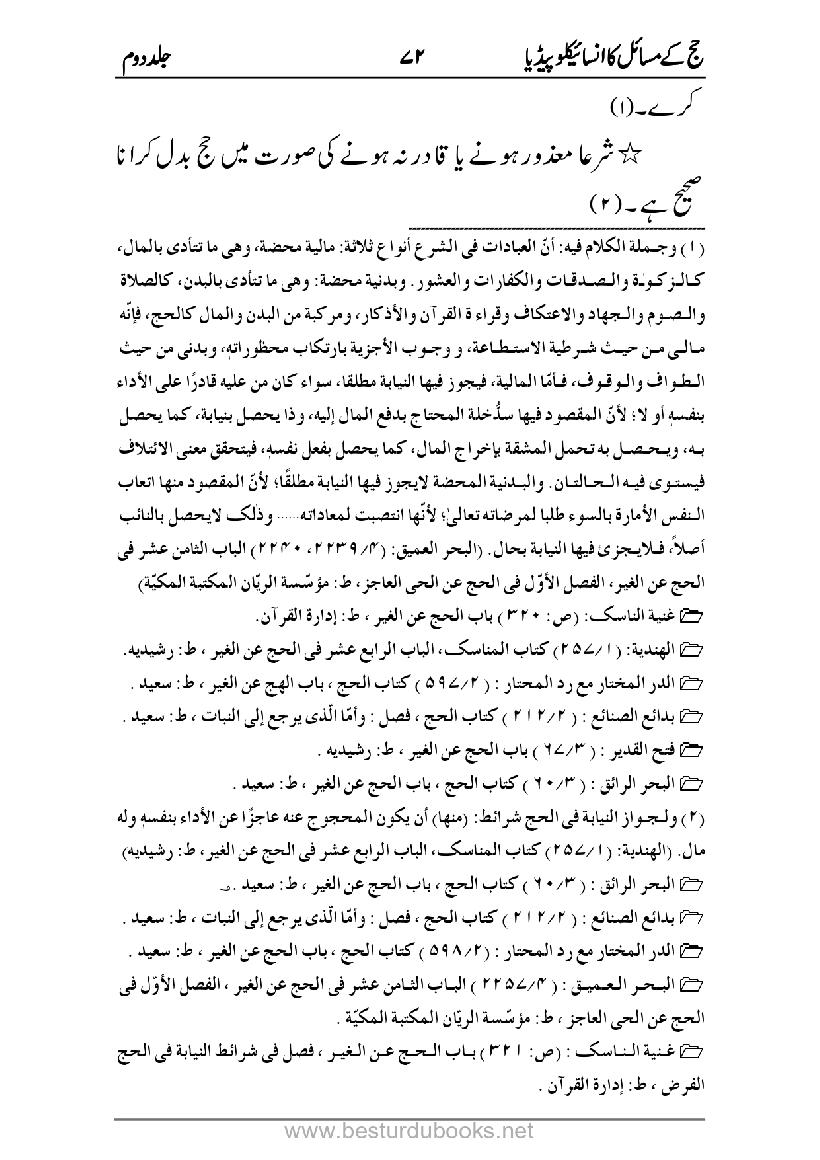 حج کے مسائل کا انسائیکلوپیڈیا ۷۲ جلد دوم
کرے۔(۱)
☆ شرعا معذور ہونے یا قادر نہ ہونے کی صورت میں حج بدل کرانا
صحیح ہے۔(۲)
(۱) وجملة الكلام فيه: أنّ العبادات فی الشرع أنواع ثلاثة: مالية محضة، وهی ما تتأدى بالمال،
كالزكوٰة والصدقات والكفارات والعشور. وبدنية محضة: وهی ما تتأدى بالبدن، كالصلاة
والصوم والجهاد والاعتكاف وقراءة القرآن والأذكار، ومركبة من البدن والمال كالحج، فإنّه
مالی من حيث شرطية الاستطاعة، و وجوب الأجزية بارتكاب محظوراته، وبدنی من حيث
الطواف والوقوف، فأمّا المالية، فيجوز فيها النيابة مطلقا، سواء كان من عليه قادرًا على الأداء
بنفسه أو لا؛ لأنّ المقصود فيها سدُّخلة المحتاج بدفع المال إليه، وذا يحصل بنيابة، كما يحصل
به، ويحصل به تحمل المشقة بإخراج المال، كما يحصل بفعل نفسه، فيتحقق معنى الائتلاف
فيستوى فيه الحالتان. والبدنية المحضة لايجوز فيها النيابة مطلقًا؛ لأنّ المقصود منها اتعاب
النفس الأمارة بالسوء طلبا لمرضاته تعالىٰ؛ لأنّها انتصبت لمعاداته ..... وذلك لايحصل بالنائب
أصلاً، فلايجزئ فيها النيابة بحال. (البحر العميق: (۴/۲۲۳۹، ۲۲۴۰) الباب الثامن عشر فی
الحج عن الغير، الفصل الأوّل فی الحج عن الحی العاجز، ط: مؤسّسة الريّان المكتبة المكيّة)
غنية الناسك: (ص: ۳۲۰) باب الحج عن الغير ، ط: إدارة القرآن.
الهندية: (۱/۲۵۷) كتاب المناسك، الباب الرابع عشر فی الحج عن الغير ، ط: رشيديه.
الدر المختار مع رد المحتار : (۲/۵۹۷) كتاب الحج ، باب الهج عن الغير ، ط: سعيد .
بدائع الصنائع : (۲/۲۱۲) كتاب الحج ، فصل : وأمّا الّذی يرجع إلى النبات ، ط: سعيد .
فتح القدير : (۳/۶۷) باب الحج عن الغير ، ط: رشيديه .
البحر الرائق : (۳/۶۰) كتاب الحج ، باب الحج عن الغير ، ط: سعيد .
(۲) ولجواز النيابة فی الحج شرائط: (منها) أن يكون المحجوج عنه عاجزًا عن الأداء بنفسه وله
مال. (الهندية: (۱/۲۵۷) كتاب المناسك، الباب الرابع عشر فی الحج عن الغير، ط: رشيديه)
البحر الرائق : (۳/۶۰) كتاب الحج ، باب الحج عن الغير ، ط: سعيد .
بدائع الصنائع : (۲/۲۱۲) كتاب الحج ، فصل : وأمّا الّذی يرجع إلى النبات ، ط: سعيد .
الدر المختار مع رد المحتار : (۲/۵۹۸) كتاب الحج ، باب الحج عن الغير ، ط: سعيد .
البحر العميق : (۴/۲۲۵۷) الباب الثامن عشر فی الحج عن الغير ، الفصل الأوّل فی
الحج عن الحی العاجز ، ط: مؤسّسة الريّان المكتبة المكيّة .
غنية الناسك : (ص: ۳۲۱) باب الحج عن الغير ، فصل فی شرائط النيابة فی الحج
الفرض ، ط: إدارة القرآن .
www.besturdubooks.net